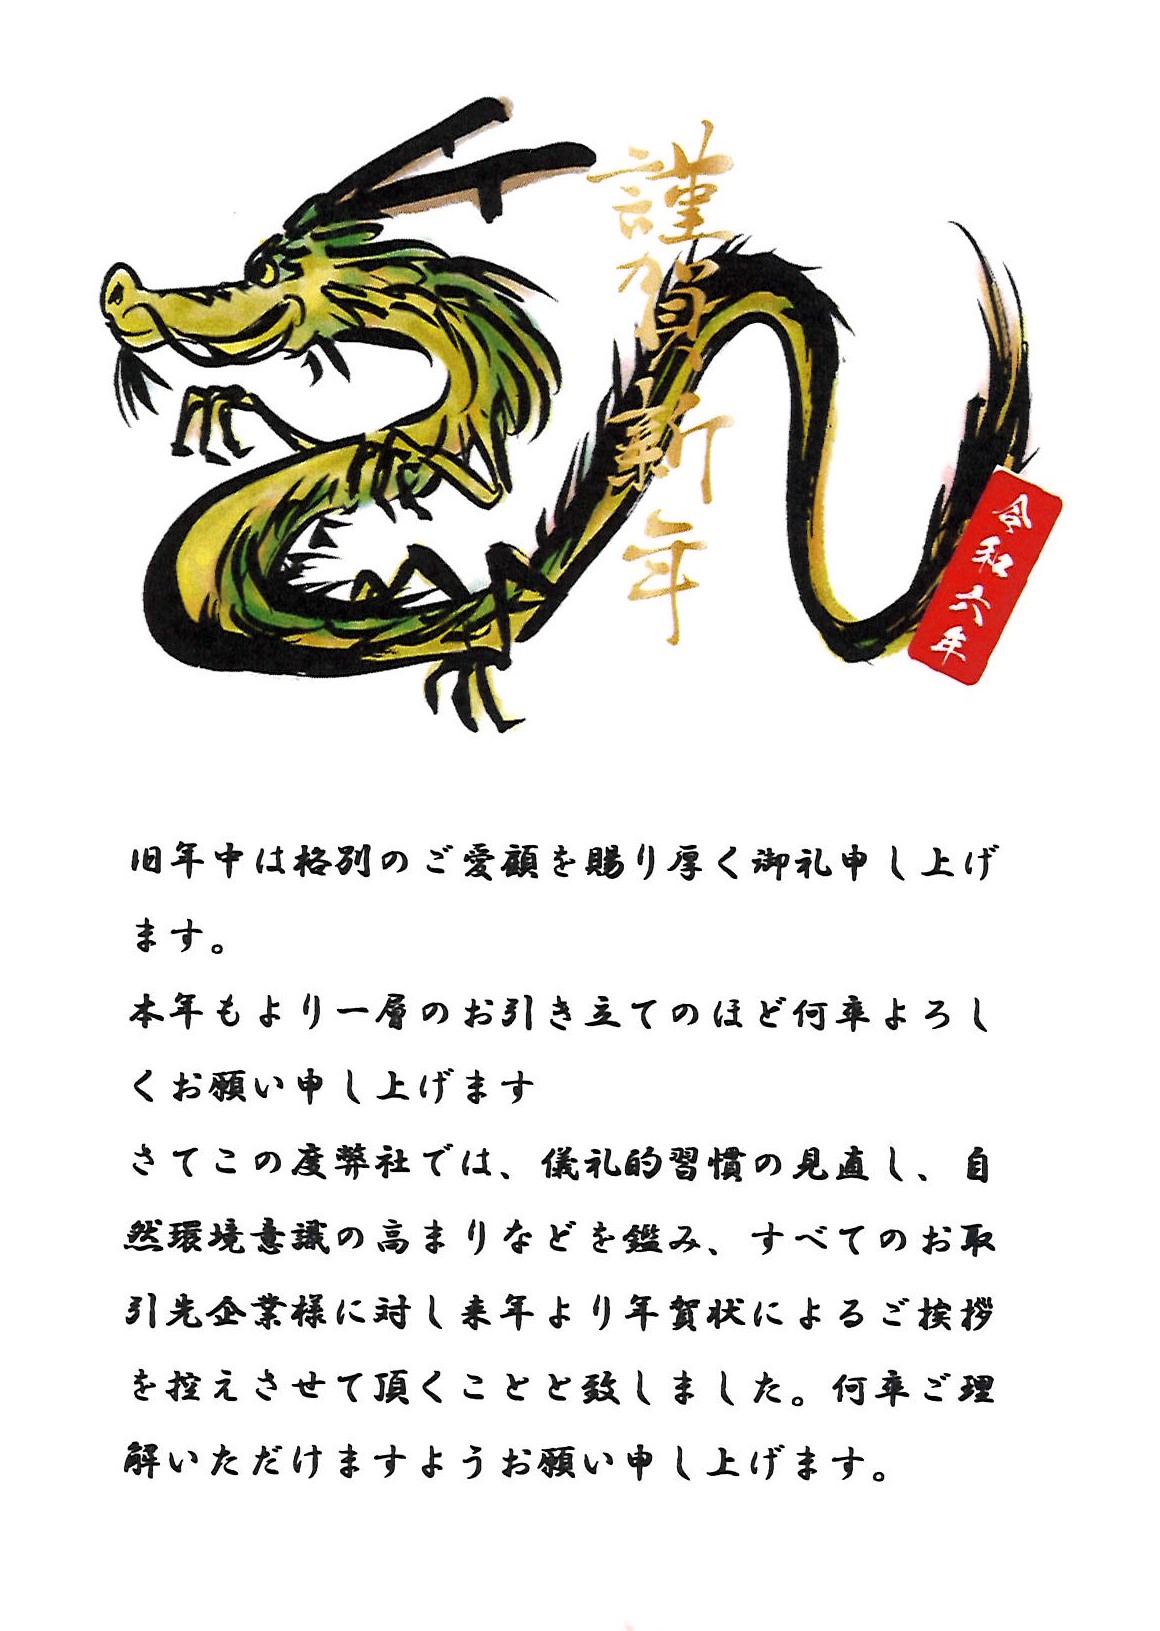 謹賀新年
令和六年
旧年中は格別のご愛顧を賜り厚く御礼申し上げ
ます。
本年もより一層のお引き立てのほど何卒よろし
くお願い申し上げます
さてこの度弊社では、儀礼的習慣の見直し、自
然環境意識の高まりなどを鑑み、すべてのお取
引先企業様に対し来年より年賀状によるご挨拶
を控えさせて頂くことと致しました。何卒ご理
解いただけますようお願い申し上げます。